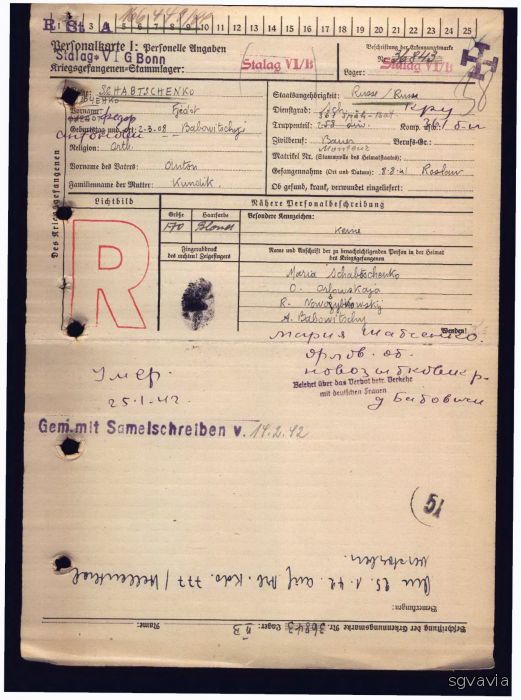 R. St. A
1 2 3 4 5 6 7 8 9 10 11 12 13 14 15 16 17 18 19 20 21 22 23 24 25
Personalkarte I: Personelle Angaben
Stalag VI G Bonn
Kriegsgefangenen-Stammlager:
Stalag VI/B
Beschriftung der Erkennungsmarke
Nr. 36843
Lager: Stalag VI/B
Des Kriegsgefangenen
Name: SCHABTSCHENKO
Staatsangehörigkeit: Russe / Russe
Vorname: Fjedor
Dienstgrad:
Федор
Антонович
Geburtstag und -ort: 2-3-08 Babowitschy
Truppenteil: Komp. usw.:
Religion: Orth.
Zivilberuf: Bauer Berufs-Gr.:
Monteur
Matrikel Nr. (Stammrolle des Heimatstaates):
Vorname des Vaters: Anton
Gefangennahme (Ort und Datum): 8-8-41 Roslaw
Familienname der Mutter: Kundik.
Ob gesund, krank, verwundet eingeliefert:
Lichtbild
Nähere Personalbeschreibung
Größe Haarfarbe Besondere Kennzeichen:
170 Blond
Keine
Fingerabdruck
des rechten! Zeigefingers
Name und Anschrift der zu benachrichtigenden Person in der Heimat
des Kriegsgefangenen
R
Maria Schabtschenko
O. Orlowskaja
R. Nowozybkowskij
A. Babowitschy
Wenden!
Мария Шабченко
Орлов. об.
Новозыбковск. р.
д Бабовичи
Belehrt über das Verbot betr. Verkehr
mit deutschen Frauen
Умер.
25.1.42.
Gem. mit Samelschreiben v. 14.2.42
51
Am 25.1.42 auf Arb. Kdo. 777 / Hellenthal
verstorben.
Bemerkungen:
Beschriftung der Erkennungsmarke Nr. 36843 Lager: VI B Name:
sgvavia